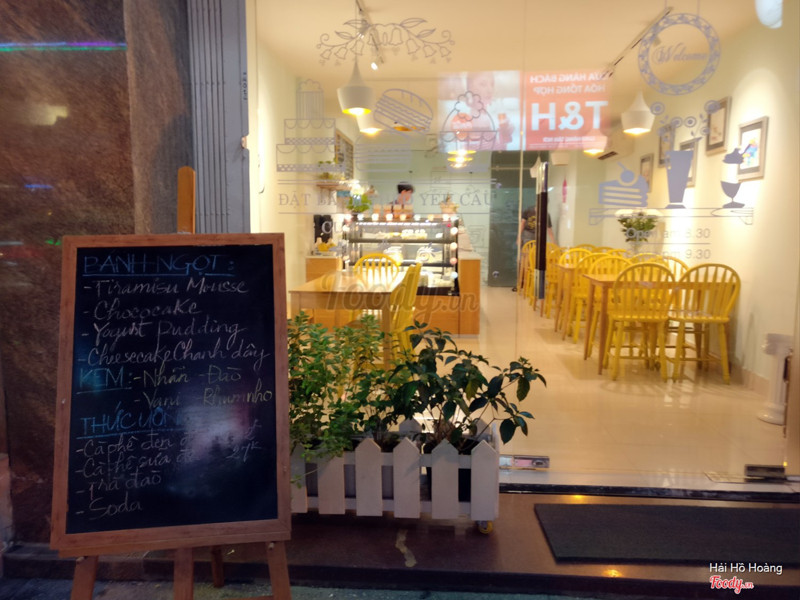 BÁNH NGỌT:
- Tiramisu Mousse
- Chococake
- Yogurt Pudding
- Cheesecake Chanh dây
KEM: - Nhãn - Đào
- Vani - Rhum nho
THỨC UỐNG
- Cà phê đen
- Cà phê sữa đá 27K
- Trà đào
- Soda
Welcome
CỬA HÀNG BÁCH
HÓA TỔNG HỢP
T&H
ĐẶT YÊU CẦU
8.30
9.30
Foody.vn
Hải Hồ Hoàng
Foody.vn